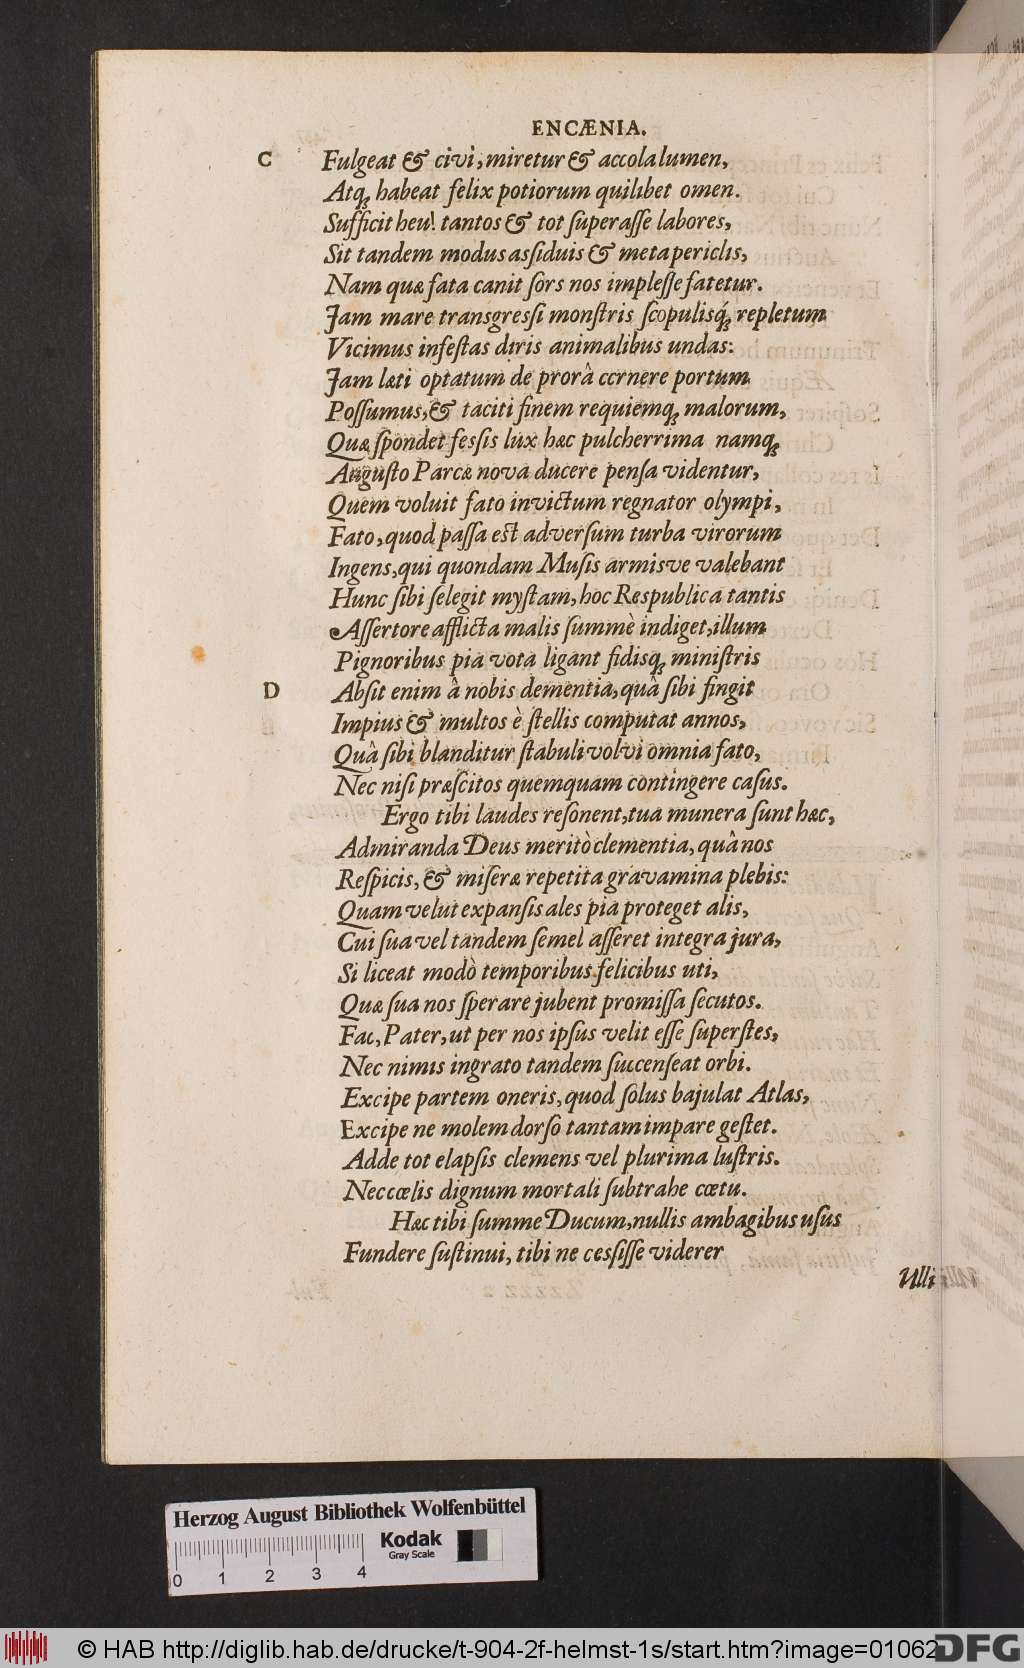 ENCÆNIA.
C Fulgeat & civi, miretur & accola lumen,
Atq́ habeat felix potiorum quilibet omen.
Sufficit heu! tantos & tot ſuperaſſe labores,
Sit tandem modus aſſiduis & meta periclis,
Nam quæ fata canit ſors nos impleſſe fatetur.
Jam mare transgreſſi monſtris ſcopulisq́ repletum
Vicimus infeſtas diris animalibus undas:
Jam læti optatum de prorâ ccrnere portum
Poſſumus, & taciti finem requiemq́ malorum,
Quæ ſpondet feſſis lux hæc pulcherrima namq́
Auguſto Parcæ nova ducere penſa videntur,
Quem voluit fato invictum regnator olympi,
Fato, quod paſſa eſt adverſum turba virorum
Ingens, qui quondam Muſis armisve valebant
Hunc ſibi ſelegit myſtam, hoc Respublica tantis
Aſſertore afflicta malis ſummè indiget, illum
Pignoribus pia vota ligant fidisq́ miniſtris
D Abſit enim â nobis dementia, quâ ſibi fingit
Impius & multos è ſtellis computat annos,
Quâ ſibi blanditur ſtabuli volvi omnia fato,
Nec niſi præſcitos quemquam contingere caſus.
Ergo tibi laudes reſonent, tua munera ſunt hæc,
Admiranda Deus meritò clementia, quâ nos
Reſpicis, & miſeræ repetita gravamina plebis:
Quam velut expanſis ales pia proteget alis,
Cui ſua vel tandem ſemel aſſeret integra jura,
Si liceat modò temporibus felicibus uti,
Quæ ſua nos ſperare jubent promiſſa ſecutos.
Fac, Pater, ut per nos ipſus velit eſſe ſuperſtes,
Nec nimis ingrato tandem ſuccenſeat orbi.
Excipe partem oneris, quod ſolus bajulat Atlas,
Excipe ne molem dorſo tantam impare geſtet.
Adde tot elapſis clemens vel plurima luſtris.
Nec cœlis dignum mortali ſubtrahe cœtu.
Hæc tibi ſumme Ducum, nullis ambagibus uſus
Fundere ſuſtinui, tibi ne ceſſiſſe viderer
Ulli
Herzog August Bibliothek Wolfenbüttel
Kodak
Gray Scale
0 1 2 3 4
© HAB http://diglib.hab.de/drucke/t-904-2f-helmst-1s/start.htm?image=01062
DFG